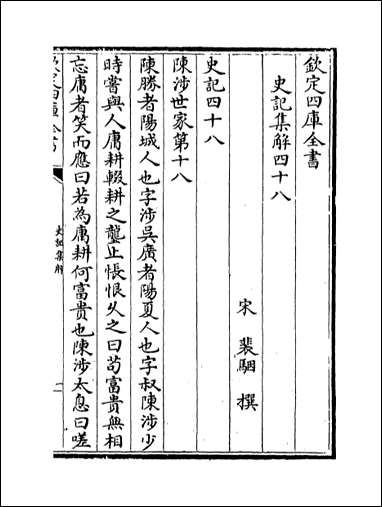 欽定四庫全書
史記集解四十八
宋 裴駰 撰
史記四十八
陳涉世家第十八
陳勝者陽城人也字涉吳廣者陽夏人也字叔陳涉少
時嘗與人庸耕輟耕之壟上悵恨久之曰茍富貴無相
忘庸者笑而應曰若為庸耕何富貴也陳涉太息曰嗟
欽定四庫全書
史記集解